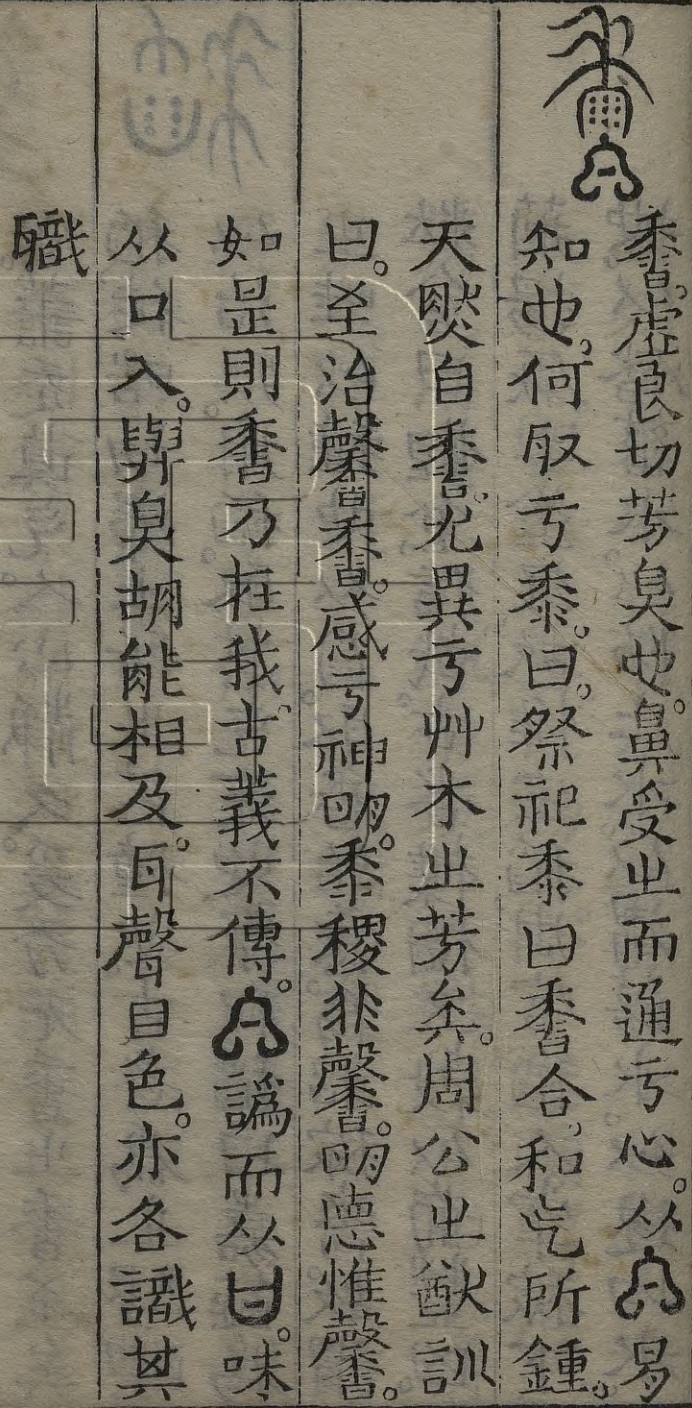 香。虛良切芳臭也。鼻受㞢而通亏心。从易
知也。何取亏黍。曰。祭祀黍曰香合。和气所鍾。
天然自香。尤異亏艸木㞢芳矣。周公㞢猷訓
曰。至治馨香。感亏神朙。黍稷非馨。朙悳惟馨。
如是則香乃在我。古義不傳。譌而从甘。味
从口入。與臭胡能相及。耳聲目色。亦各識其
職